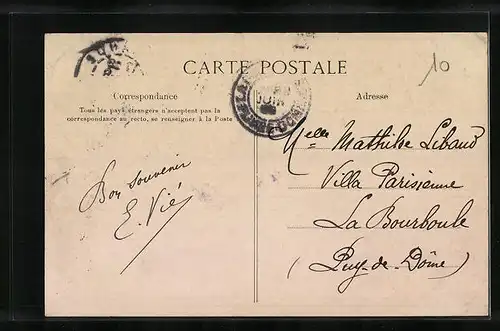 10
CARTE POSTALE
Correspondance
Tous les pays étrangers n'acceptent pas la
correspondance au recto, se renseigner à la Poste
Adresse
Bon souvenir
E. Vié
Melle Mathilde Libaud
Villa Parisienne
La Bourboule
(Puy-de-Dôme)